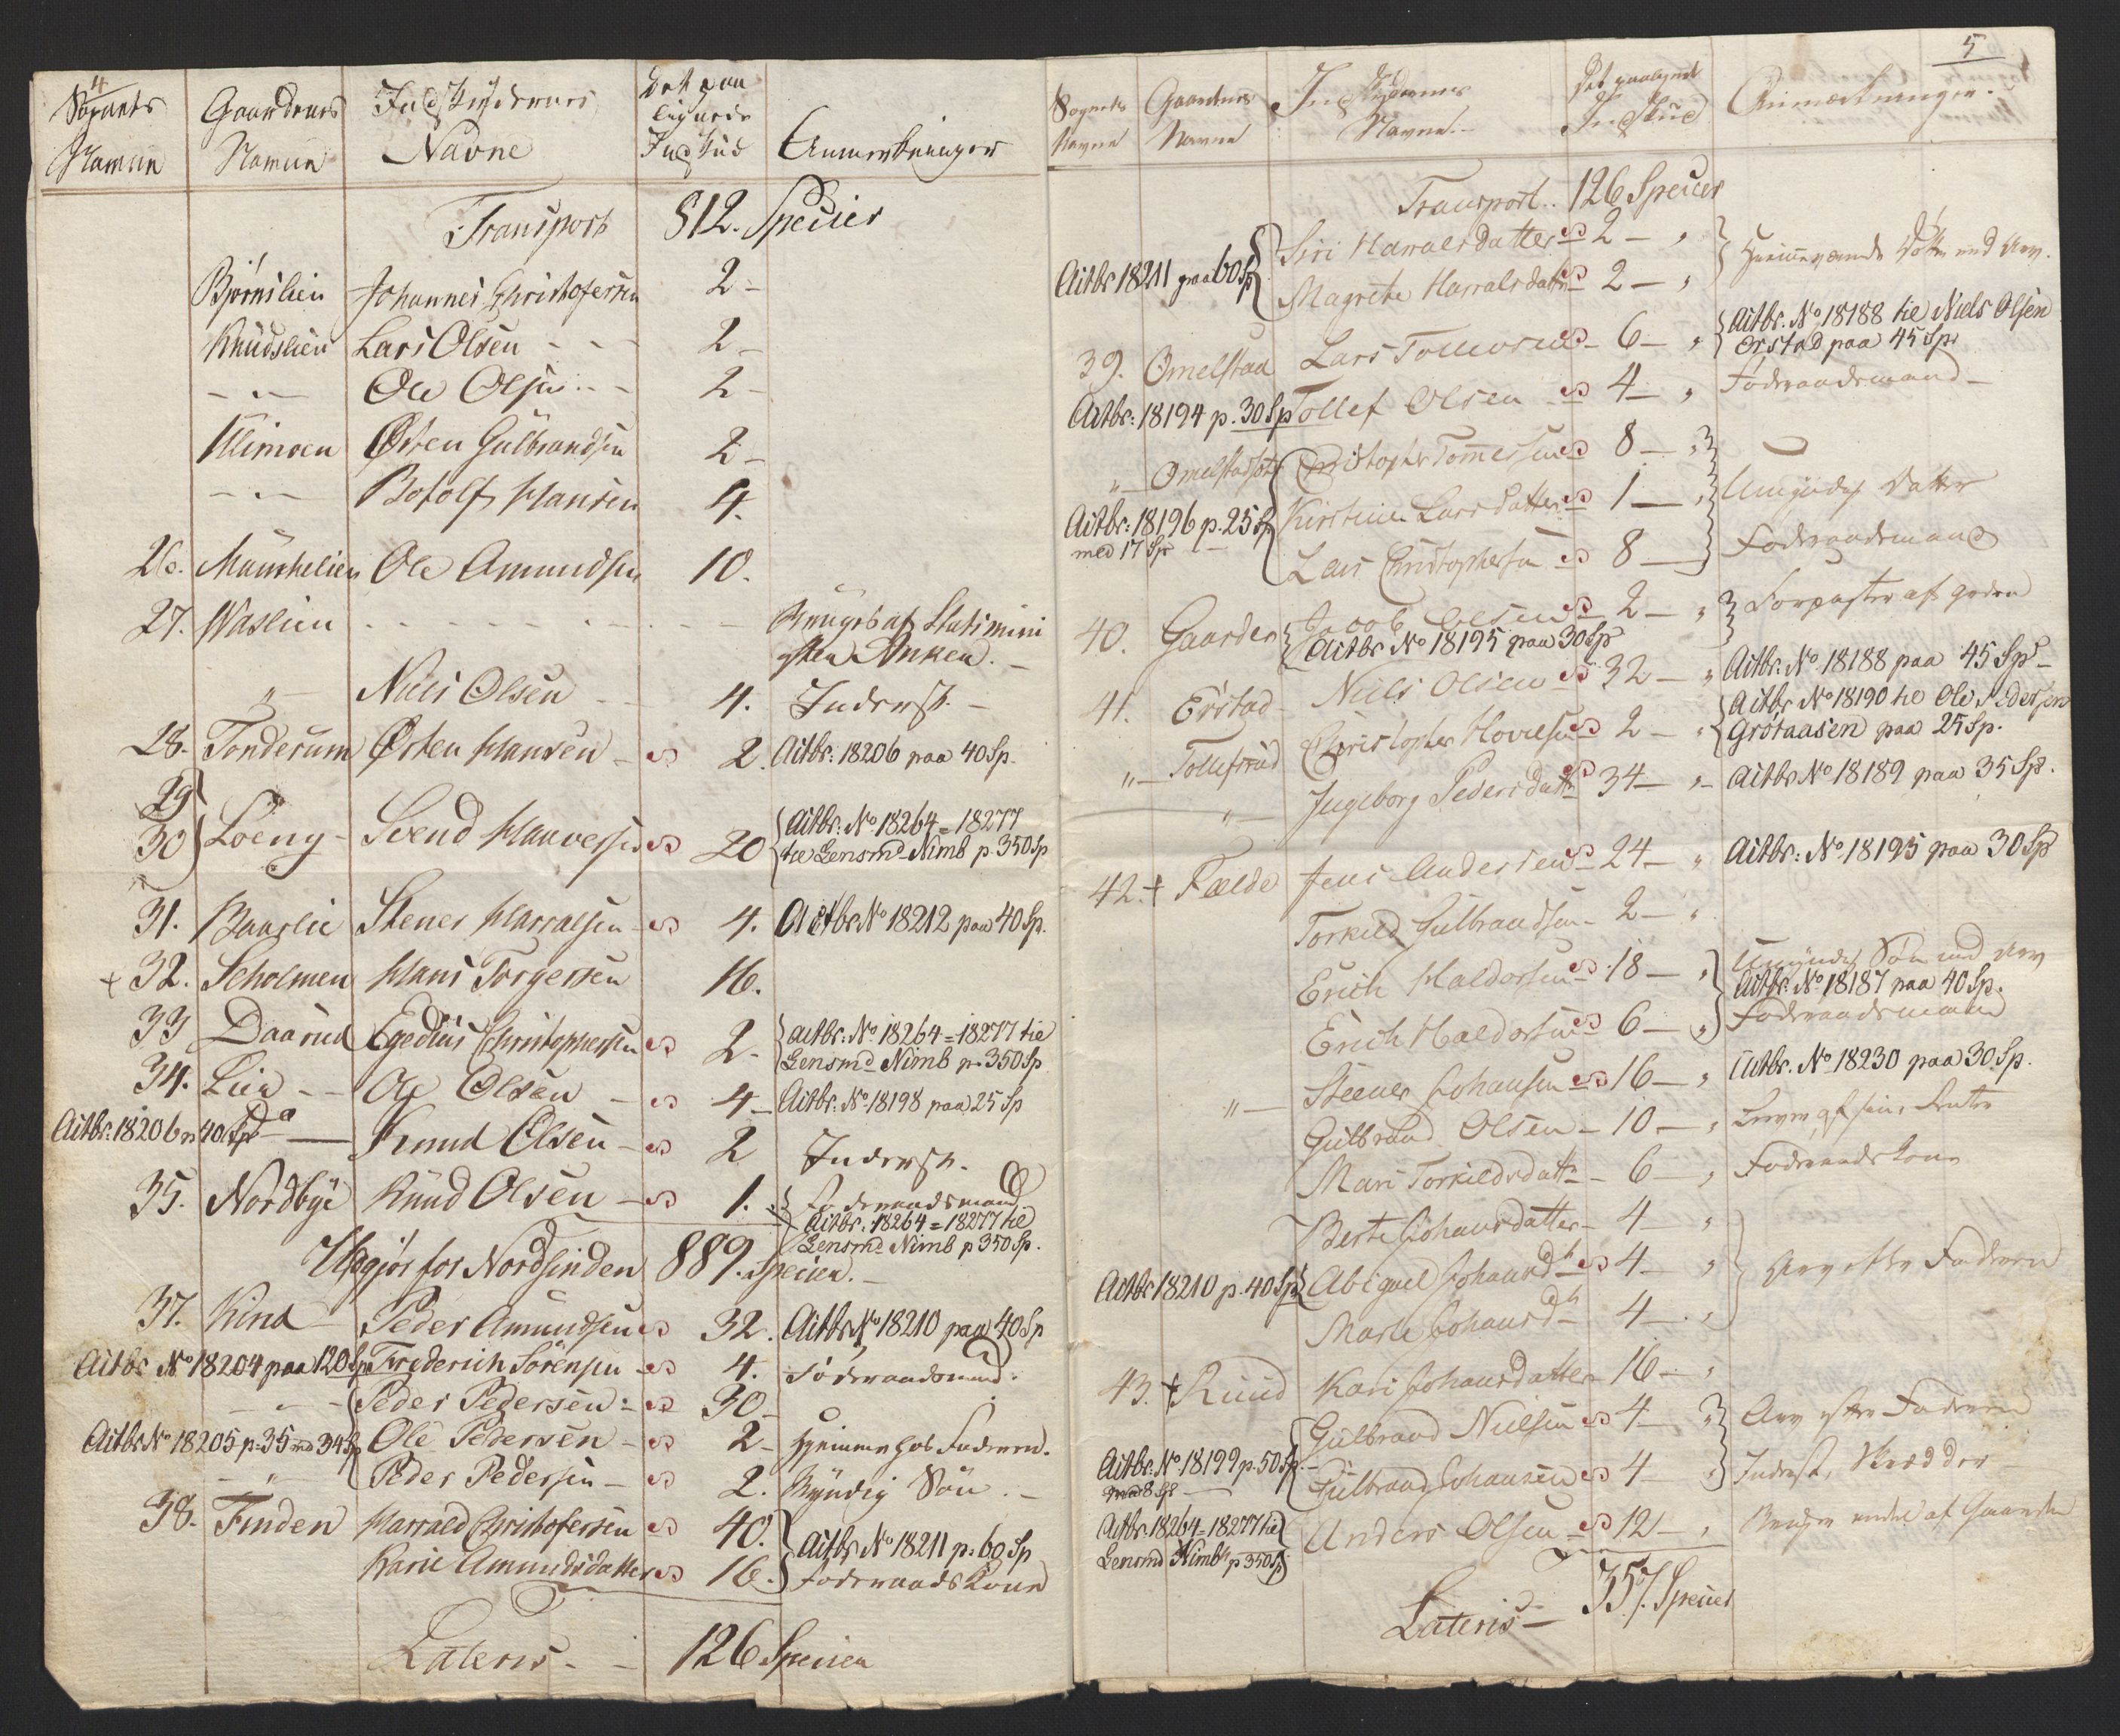 4
Sognets Gaardenes Indskydernes Det paa
lignede
Navne Navne Navne Indskud Anmerkninger
Transport 812. Specier
Bjørnslien Johannes Christofersen 2 -
Knudslien Lars Olsen - - - 2 -
- " - Ole Olsen - - 2 -
Klimoen Østen Gulbrandsen 2 -
- " - Botolf Hansen 4.
26. Munkelien Ole Amundsen 10.
27. Waslien - - - - - - Bruges af Statsmini
steren Anken. -
" - Niels Olsen - - 4. Inderst. -
28. Tonderum Østen Hansen - 2. Actbr: 18206 paa 40 Sp.
29
30 Loeng - Svend Hanvessen 20 Actbr: No 18264 = 18277
til Lensmd Nimb p 350 Sp
31. Baaslie Stener Harralsen - 4. Actbr No 18212 paa 40 Sp.
+ 32. Scholmen Hans Torgersen 16.
33 Daarud Egedius Christophersen 2 - Actbr: No 18264 = 18277 til
Lensmd Nimb p. 350 Sp
34. Lien - - Ole Olsen - 4 - Actbr: No 18198 paa 25 Sp
Actbr: 18206 p 40 Sp - Knud Olsen - 2 Inderst.
35. Nordbye Knud Olsen - 1. Føderaadsmand
Actbr: 18264 = 18277 til
Lensmd Nimb p 350 Sp.
Udgjør for Nordsinden 889. Specier. -
37. Kind Peder Amundsen 32. Actbr No 18210 paa 40 Sp
Actbr No 18204 paa 120 Sp Frederich Sörensen - 4. Föderaadsmand.
- " - Peder Pedersen - 30 -
Actbr No 18205 p. 35 md 34 Sp Ole Pedersen - 2 - Hjemme hos Faderen.
- " - Peder Pedersen - 2. Myndig Sön. -
38. Finden Harrald Christofersen 40. Actbr No 18211 p. 60 Sp
Karie Amundsdatter 16. Föderaads Kone
Lateris - - 126 Specier
5
Sognets Gaardenes Indskydernes Det paalignede Anmærkninger.
Navne Navne Navne - Indskud
Transport .. 126 Specier
Actbr 18211 paa 60 Sp Siri Harralsdatter 2 - " Hjemmeværende Døttre med Arv.
Magrete Harralsdatter 2 - "
39. Omelstad Lars Tomesen 6 - " Actbr. No 18188 til Niels Olsen
Ørstad paa 45 Sp
Actbr: 18194 p. 30 Sp Tollef Olsen 4 - " Föderaadsmand -
" - Omelstad Christopher Tommessen 8 - "
Actbr: 18196 p. 25 Sp Kirstine Larsdatter 1 - " Umyndig Datter
med 17 Sp -
Lars Christophersen 8 - Föderaadsmand
40. Gaarder Jacob Olsen 2 - " Forpagter af Jorden
Actbr No 18195 paa 30 Sp
41. Erstad - Niels Olsen 32 - " Actbr. No 18188 paa 45 Sp -
" - Tollefsrud Christopher Hovelsen 2 - " Actbr No 18190 til Ole Pedersen
Grøtaasen paa 25 Sp.
" - Ingeborg Pedersdatter 34 - " - Actbr No 18189 paa 35 Sp.
42. + Fælde Jens Andersen 24 - " Actbr: No 18195 paa 30 Sp
Torkild Gulbrandsen - 2 - "
Erich Haldorsen 18 - " Umyndig Sön med Arv
Actbr. No 18187 paa 40 Sp.
Erich Haldorsen 6 - " Föderaadsmand
" - Steener Johansen 16 - " Actbr. No 18230 paa 30 Sp.
Gulbrand Olsen - 10 - " Lever af sine Renter
Mari Torkildsdatter - 6 - " Föderaads Kone
Berte Johansdatter - 4 - "
Actbr 18210 p. 40 Sp Abigael Johansdtr 4 - " Arv efter Faderen
Marte Johansdtr 4 - "
43. + Ruud Kari Johansdatter - 16 - "
Gulbrand Nielsen 4 - " Arv efter Faderen
Actbr. No 18199 p. 50 Sp. -
med 8 Sp - Gulbrand Johansen 4 - " Inderst, Skredder -
Actbr. 18264 = 18277 til
Lensmd Nimb p 350 Sp Anders Olsen - 12 - " Bruger endeel af Gaarden
Lateris - 357. Specier